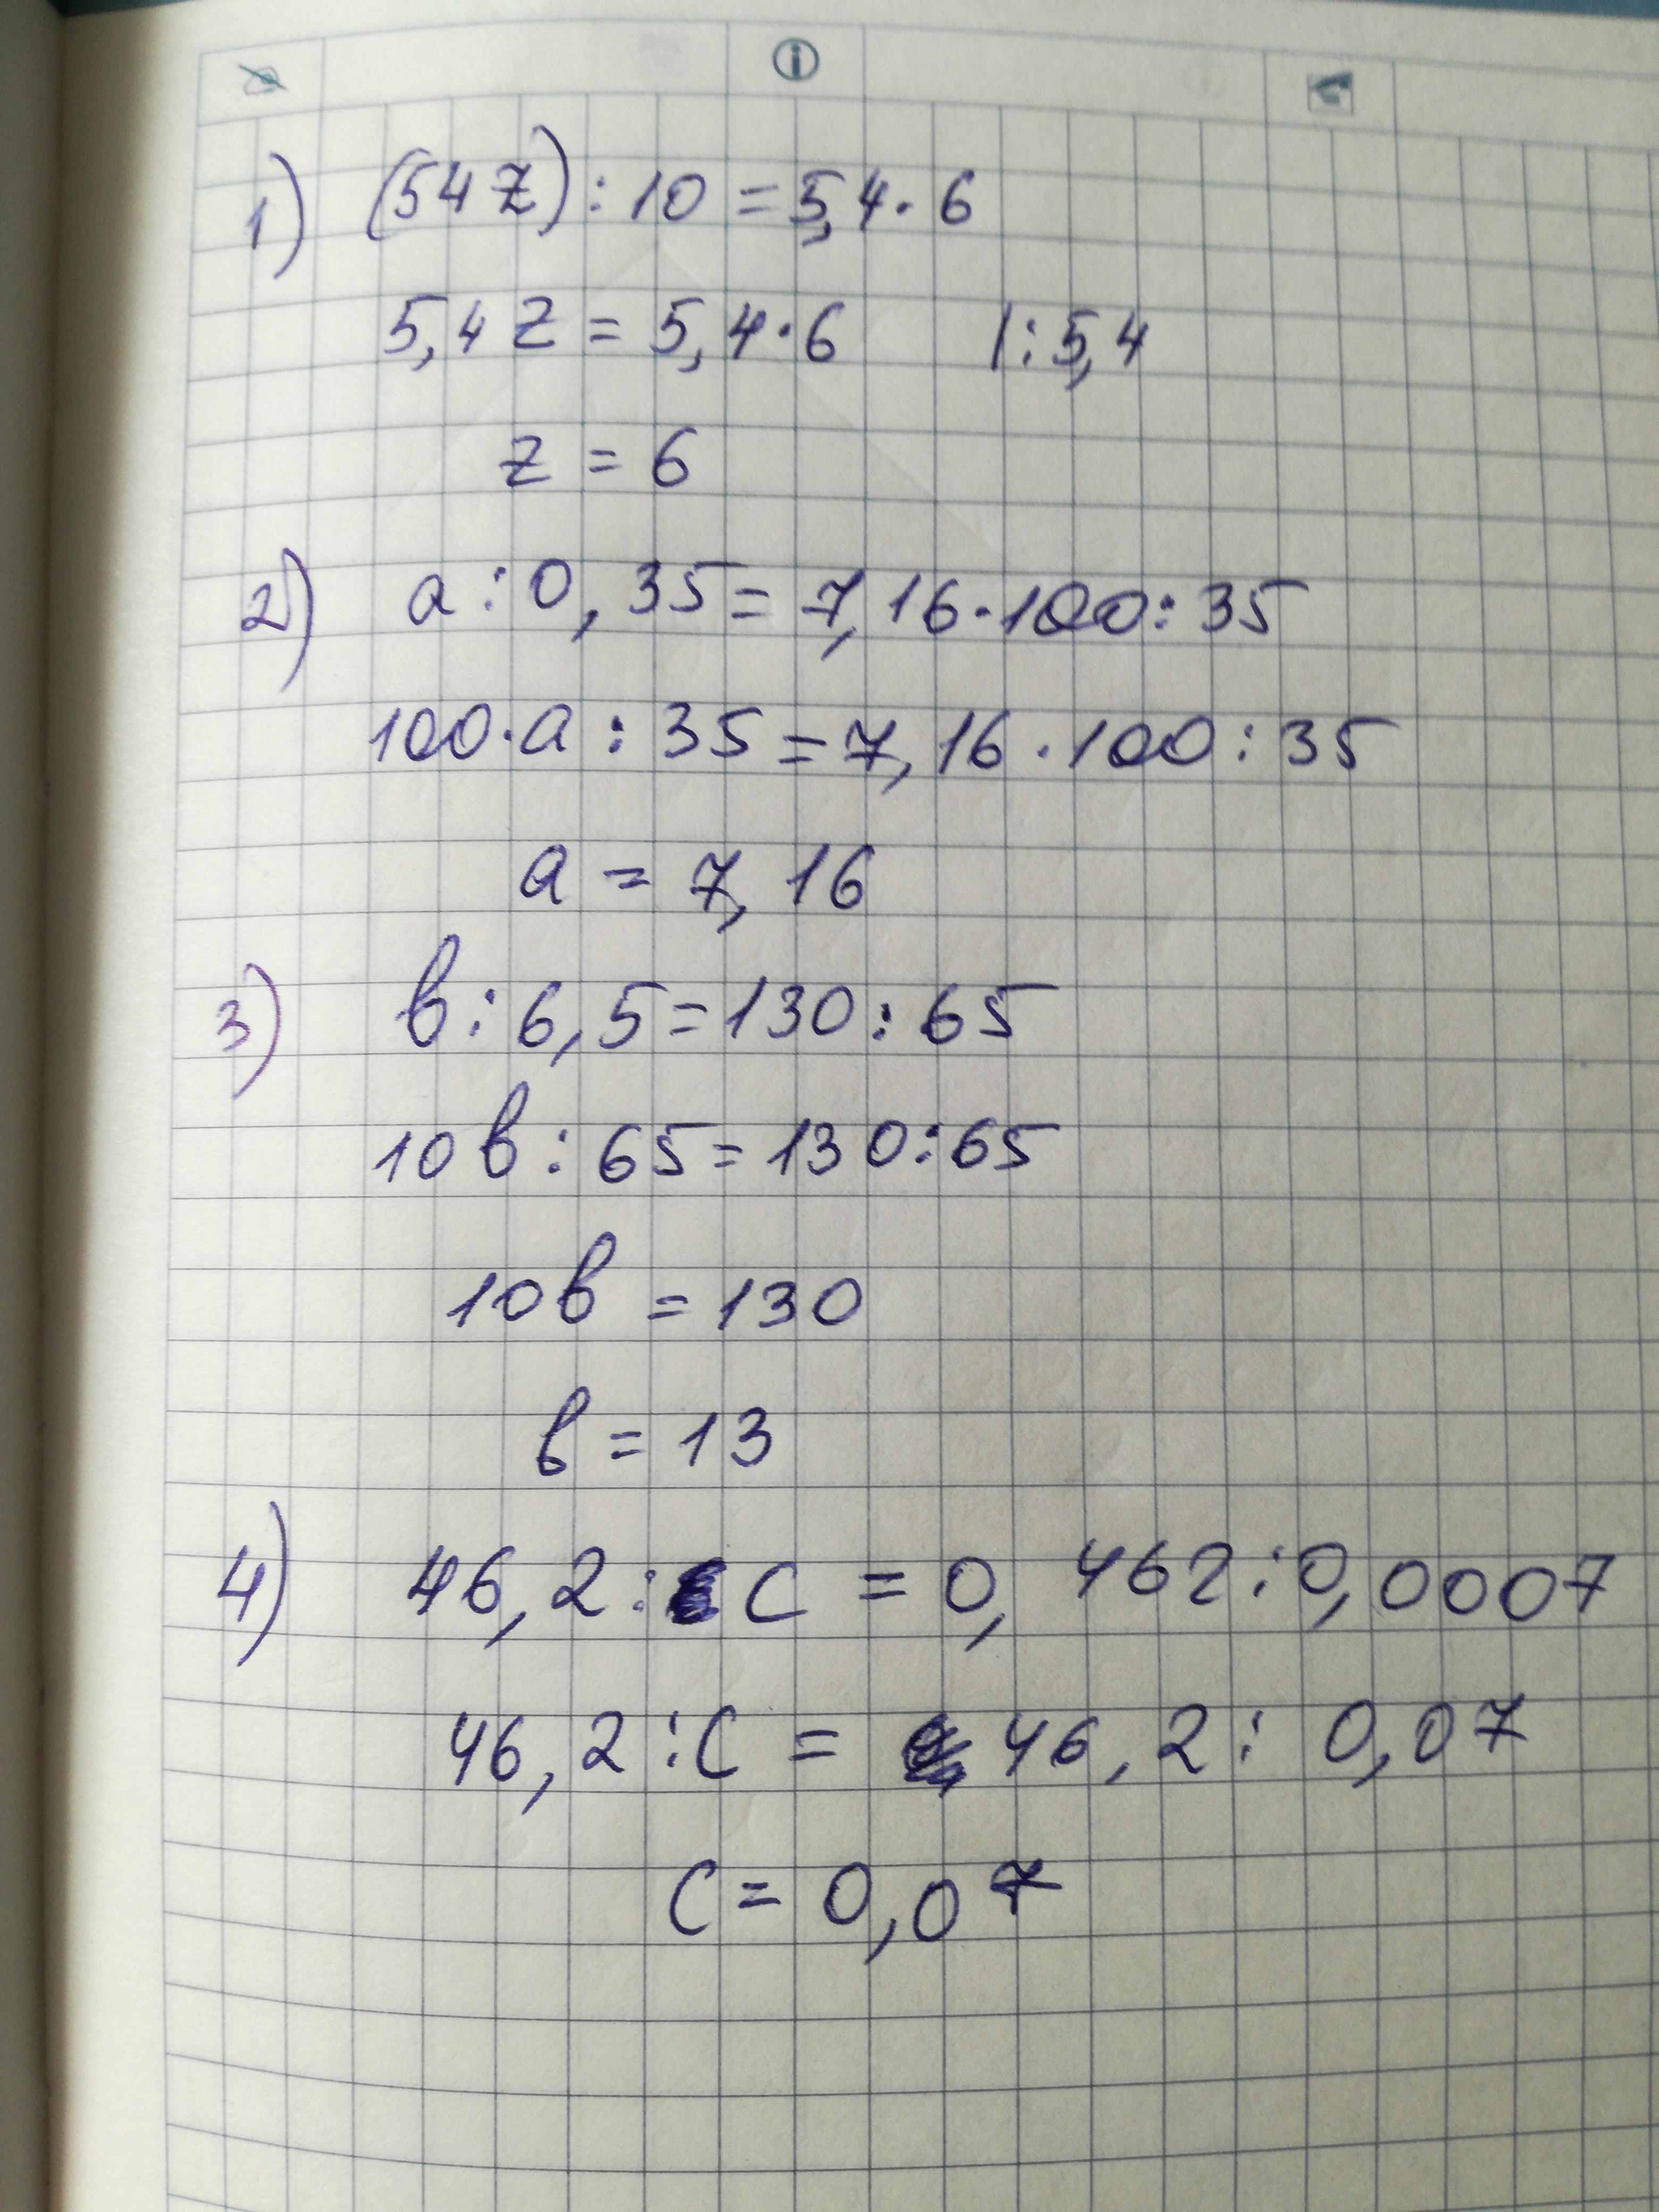 1) (54z):10=5,4·6
5,4z=5,4·6 |:5,4
z=6
2) a:0,35=7,16·100:35
100·a:35=7,16·100:35
a=7,16
3) b:6,5=130:65
10b:65=130:65
10b=130
b=13
4) 46,2:c=0,462:0,0007
46,2:c=46,2:0,07
c=0,07